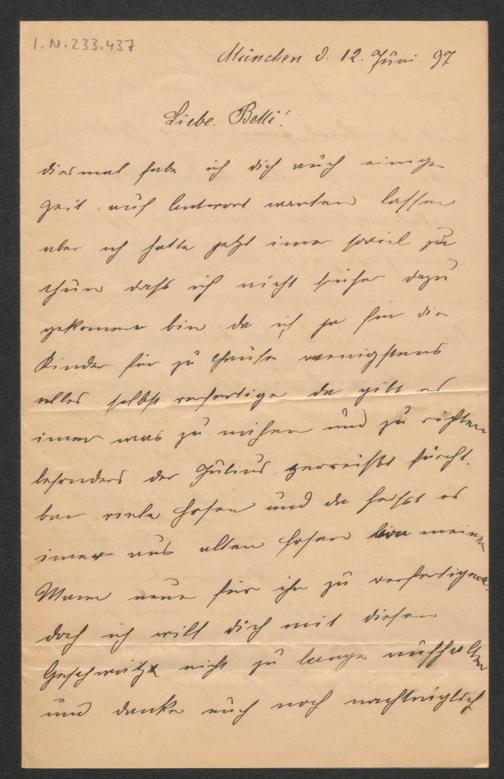 I.N.233.437
München d. 12. Juni 97
Liebe Betti!
diesmal habe ich dich auch einige
Zeit auf Antwort warten lassen
aber ich hatte jetzt imer soviel zu
thun daß ich nicht früher dazu
gekommen bin da ich ja für die
Kinder für zu Hause wenigstens
alles selbst verfertige da gibt es
imer was zu nähen und zu richten
besonders der Julius zerreißt furcht-
bar viele Hosen und da heißt es
imer aus alten Hosen von meinen
Mann neue für ihn zu verfertigen.
doch ich will dich mit diesen
Geschwätz nicht zu lange aufhalten
und danke euch noch nachträglich